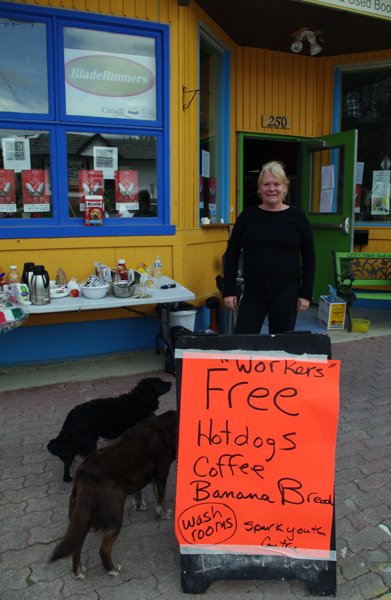 & Used Boo
BladeRunners
Canada
250
"Workers"
Free
Hotdogs
Coffee
Banana Bread
Wash
rooms
Spark youth
Centre